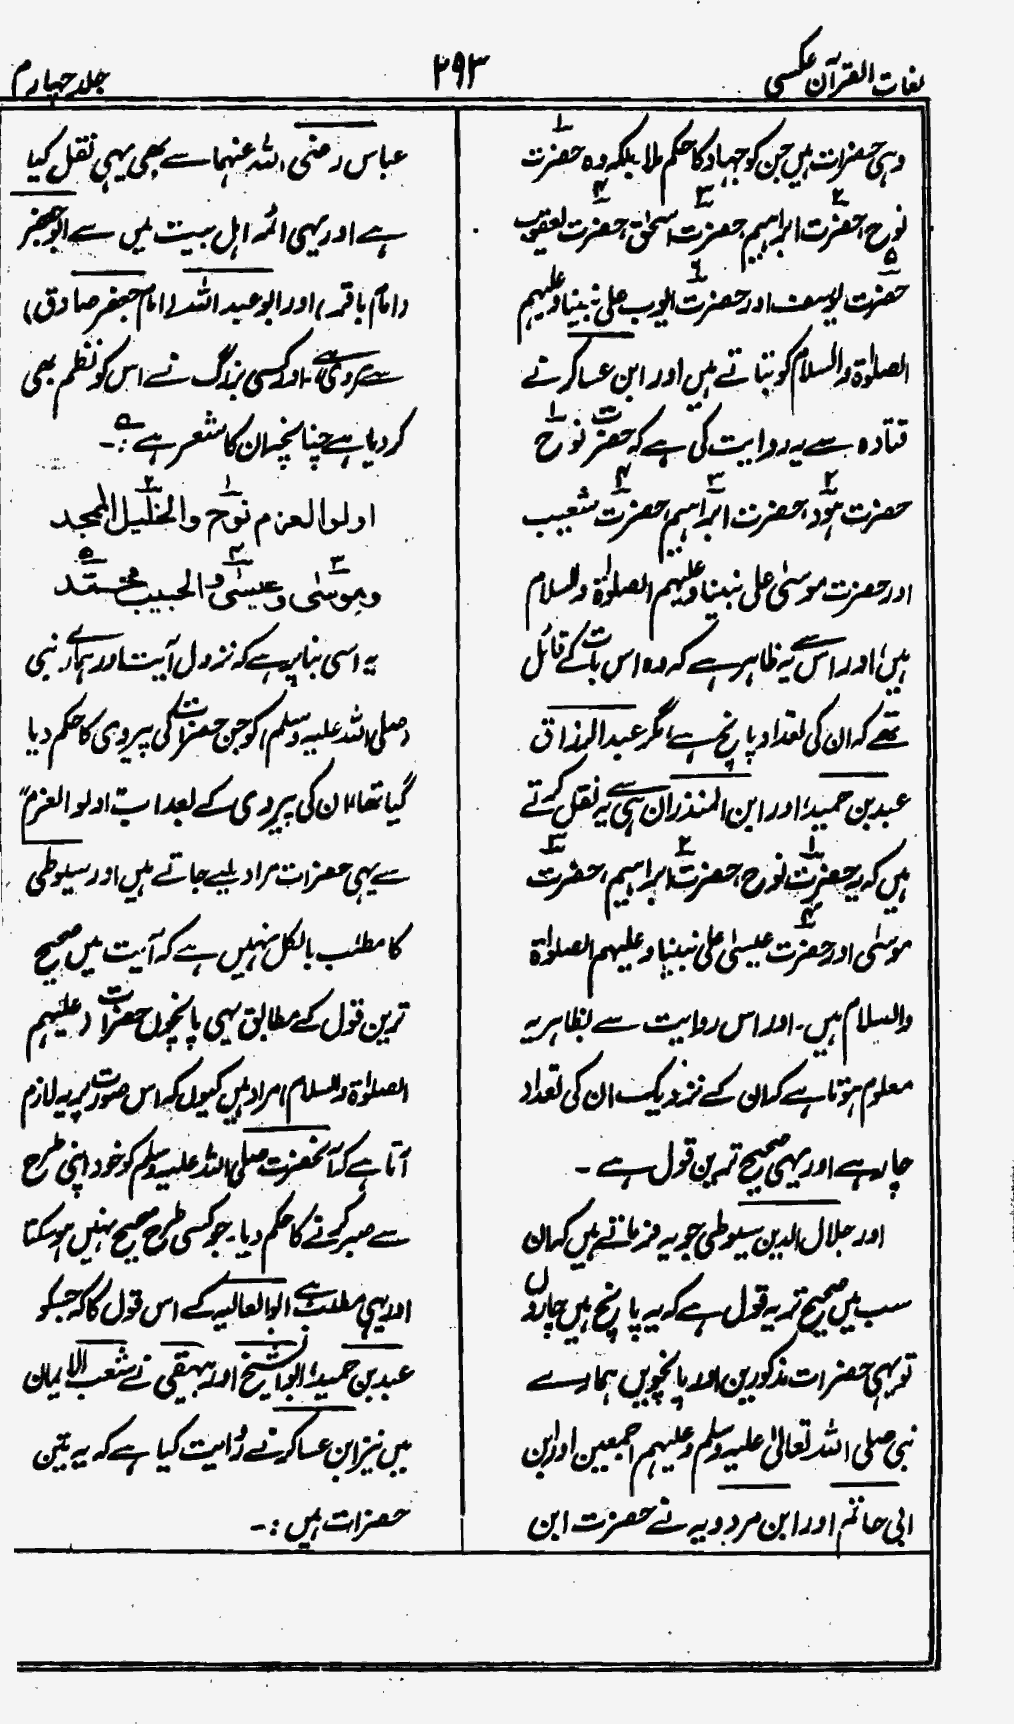 لغات القرآن عکسی
۲۹۳
جلد چہارم
وہی حضرات ہیں جن کو جہاد کا حکم ملا بلکہ وہ حضرت ۱
نوح، حضرت ۲ ابراہیم، حضرت ۳ اسحٰق، حضرت ۴ یعقوب
حضرت ۵ یوسف اور حضرت ۶ ایوب علیٰ نبینا وعلیہم
الصلوٰۃ والسلام کو بتاتے ہیں اور ابن عساکر نے
قتادہ سے یہ روایت کی ہے کہ حضرت ۱ نوح
حضرت ۲ ہود، حضرت ۳ ابراہیم، حضرت ۴ شعیب
اور حضرت موسیٰ علی نبینا وعلیہم الصلوٰۃ والسلام
ہیں، اور اس سے یہ ظاہر ہے کہ وہ اس بات کے قائل
تھے کہ ان کی تعداد پانچ ہے، مگر عبدالرزاق
عبد بن حمید، اور ابن المنذر ان ہی سے یہ نقل کرتے
ہیں کہ یہ حضرت ۱ نوح، حضرت ۲ ابراہیم، حضرت ۳
موسیٰ اور حضرت ۴ عیسیٰ علیٰ نبینا وعلیہم الصلوٰۃ
والسلام ہیں۔ اور اس روایت سے بظاہر یہ
معلوم ہوتا ہے کہ ان کے نزدیک ان کی تعداد
چار ہے اور یہی صحیح ترین قول ہے ۔
اور جلال الدین سیوطی جو یہ فرماتے ہیں کہ ان
سب میں صحیح تر یہ قول ہے کہ یہ پانچ ہیں چاروں
تو یہی حضرات مذکورین اور پانچویں ہمارے
نبی صلی اللہ تعالیٰ علیہ وسلم وعلیہم اجمعین اور ابن
ابی حاتم اور ابن مردویہ نے حضرت ابن
عباس رضی اللہ عنہما سے بھی یہی نقل کیا
ہے اور یہی ائمہ اہل بیت میں سے ابو جعفر
(امام باقر) اور ابو عبد اللہ (امام جعفر صادق)
سے مروی ہے۔ اور کسی بزرگ نے اس کو نظم بھی
کر دیا ہے چنانچہ ان کا شعر ہے :۔
اولوا العزم نوح ۱ والخلیل ۲ الممجد
وموسٰی ۳ وعیسٰی ۴ والحبیب محمّد ۵
یہ اسی بنا پر ہے کہ نزول آیت اور ہمارے نبی
(صلی اللہ علیہ وسلم) کو جن حضرات کی پیروی کا حکم دیا
گیا تھا ان کی پیروی کے بعد اب اولو العزم"
سے یہی حضرات مراد لیے جاتے ہیں اور سیوطی
کا مطلب بالکل نہیں ہے کہ آیت میں صحیح
ترین قول کے مطابق یہی پانچوں حضرات (علیہم
الصلوٰۃ والسلام) مراد ہیں کیوں کہ اس صورت پر یہ لازم
آتا ہے کہ آنحضرت صلی اللہ علیہ وسلم کو خود اپنی طرح
سے صبر کرنے کا حکم دیا۔ جو کسی طرح صحیح نہیں ہو سکتا
اور یہی مطلب ہے ابو العالیہ کے اس قول کا کہ جس کو
عبد بن حمید، ابو الشیخ اور بیہقی نے شعب الایمان
میں نیز ابن عساکر نے روایت کیا ہے کہ یہ تین
حضرات ہیں :۔